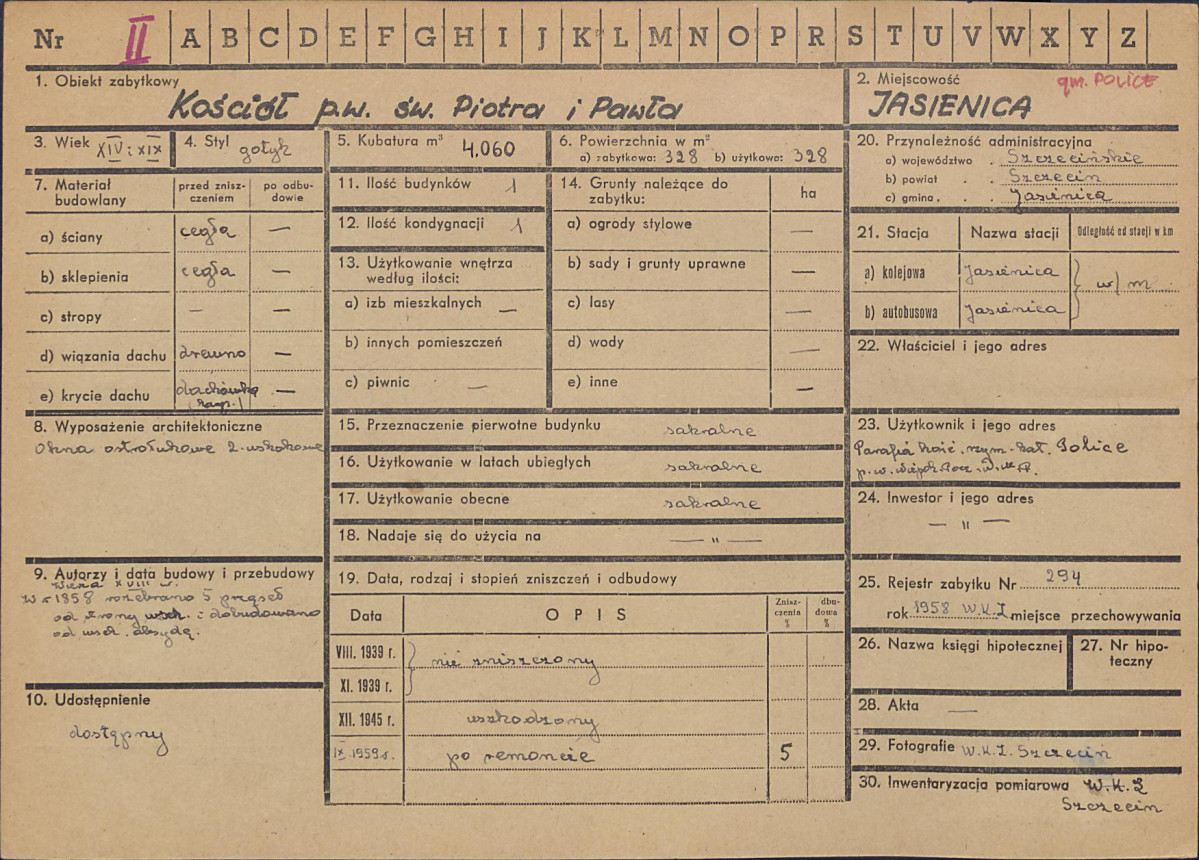 Nr II A B C D E F G H I J K L M N O P R S T U V W X Y Z
1. Obiekt zabytkowy
Kościół p.w. św. Piotra i Pawła
2. Miejscowość
gm. POLICE
JASIENICA
3. Wiek XIV i XIX
4. Styl gotyk
5. Kubatura m³ 4,060
6. Powierzchnia w m²
a) zabytkowa: 328 b) użytkowa: 328
7. Materiał budowlany
przed znisz-
czeniem
po odbu-
dowie
a) ściany cegła —
b) sklepienia cegła —
c) stropy — —
d) wiązania dachu drewno —
e) krycie dachu dachówka —
8. Wyposażenie architektoniczne
Okna ostrołukowe 2-uskokowe
9. Autorzy i data budowy i przebudowy
Wieża XVIII w.
W r 1858 rozebrano 5 przęseł
od strony wsch. i dobudowano
od wsch. absydę.
10. Udostępnienie
dostępny
11. Ilość budynków 1
12. Ilość kondygnacji 1
13. Użytkowanie wnętrza
według ilości:
a) izb mieszkalnych —
b) innych pomieszczeń
c) piwnic —
14. Grunty należące do
zabytku:
ha
a) ogrody stylowe —
b) sady i grunty uprawne —
c) lasy —
d) wody —
e) inne —
15. Przeznaczenie pierwotne budynku sakralne
16. Użytkowanie w latach ubiegłych sakralne
17. Użytkowanie obecne sakralne
18. Nadaje się do użycia na — „ —
19. Data, rodzaj i stopień zniszczeń i odbudowy
Data
OPIS
Znisz-
czenia
%
dbu-
dowa
%
VIII. 1939 r.
nie zniszczony
XI. 1939 r.
XII. 1945 r. uszkodzony
IX. 1959 r. po remoncie 5
20. Przynależność administracyjna
a) województwo Szczecińskie
b) powiat Szczecin
c) gmina Jasienica
21. Stacja
Nazwa stacji
Odległość od stacji w km
a) kolejowa Jasienica
w/m
b) autobusowa Jasienica
22. Właściciel i jego adres
23. Użytkownik i jego adres
Parafia kość. rzym. kat. Police
p.w.
24. Inwestor i jego adres
— „ —
25. Rejestr zabytku Nr 294
rok 1958 W.K.Z miejsce przechowywania
26. Nazwa księgi hipotecznej
27. Nr hipo-
teczny
28. Akta —
29. Fotografie W.K.Z. Szczecin
30. Inwentaryzacja pomiarowa W.K.Z
Szczecin